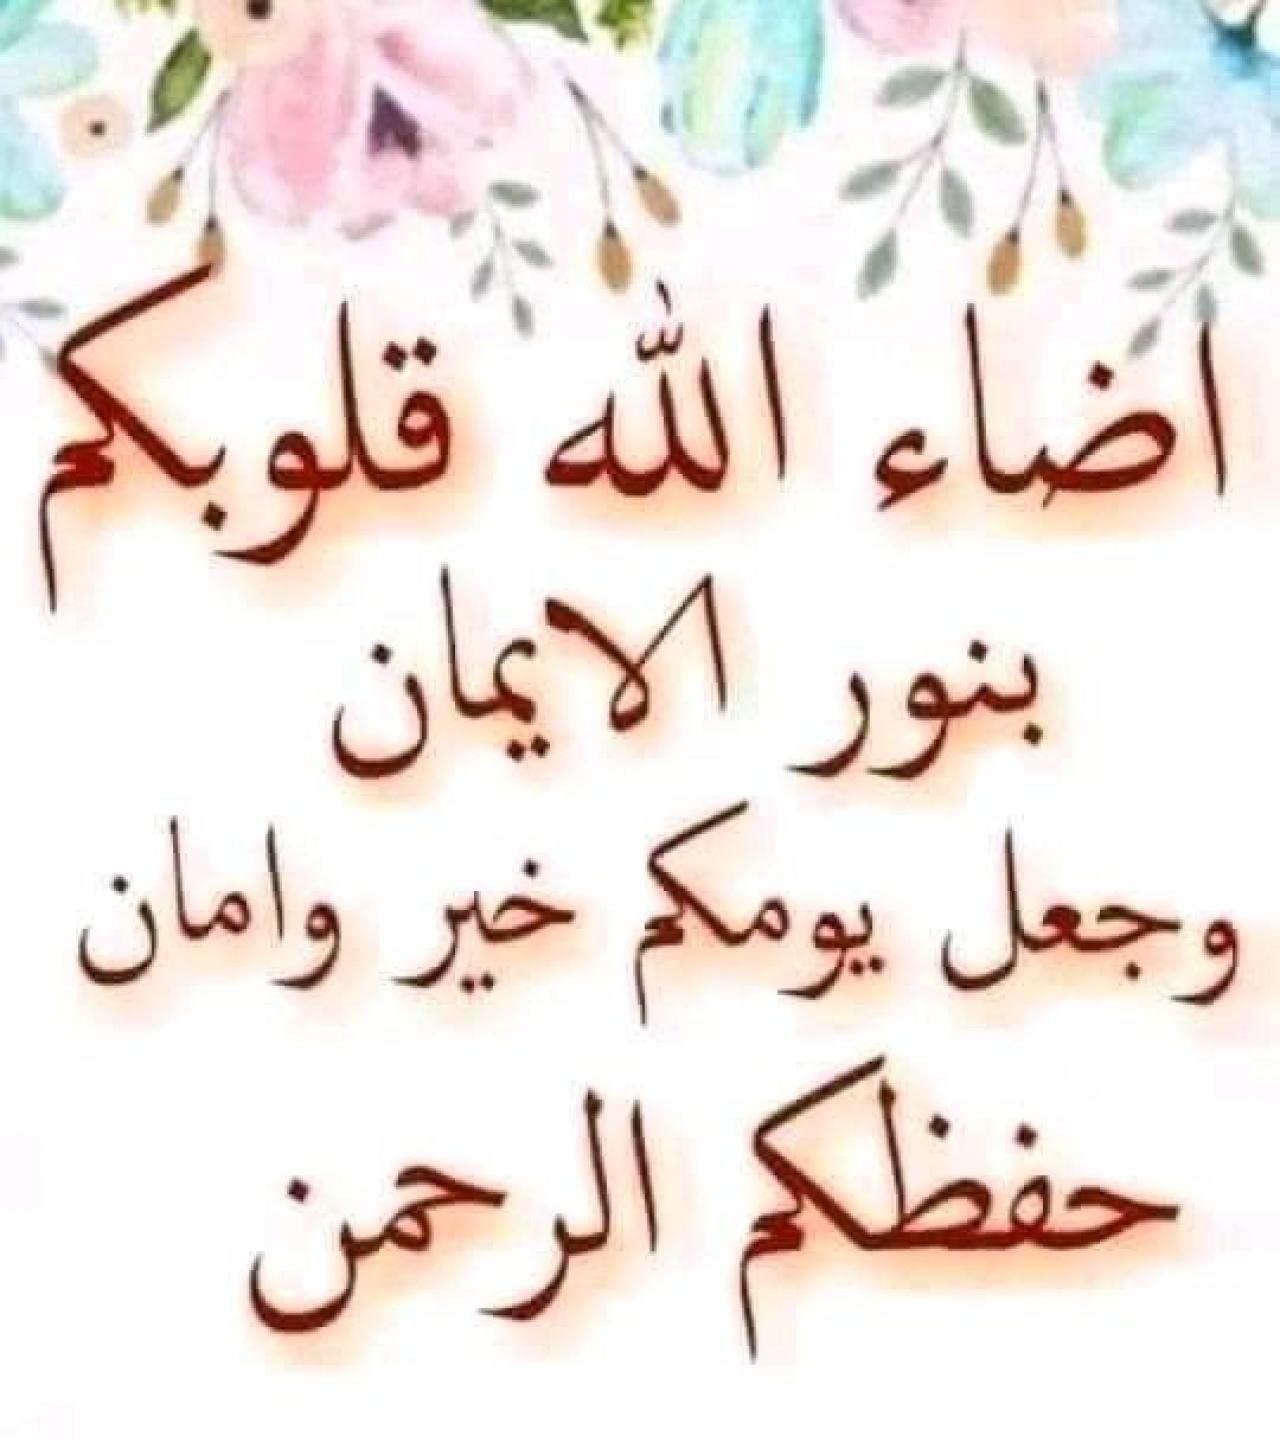 اضاء الله قلوبكم
بنور الايمان
وجعل يومكم خير وامان
حفظكم الرحمن